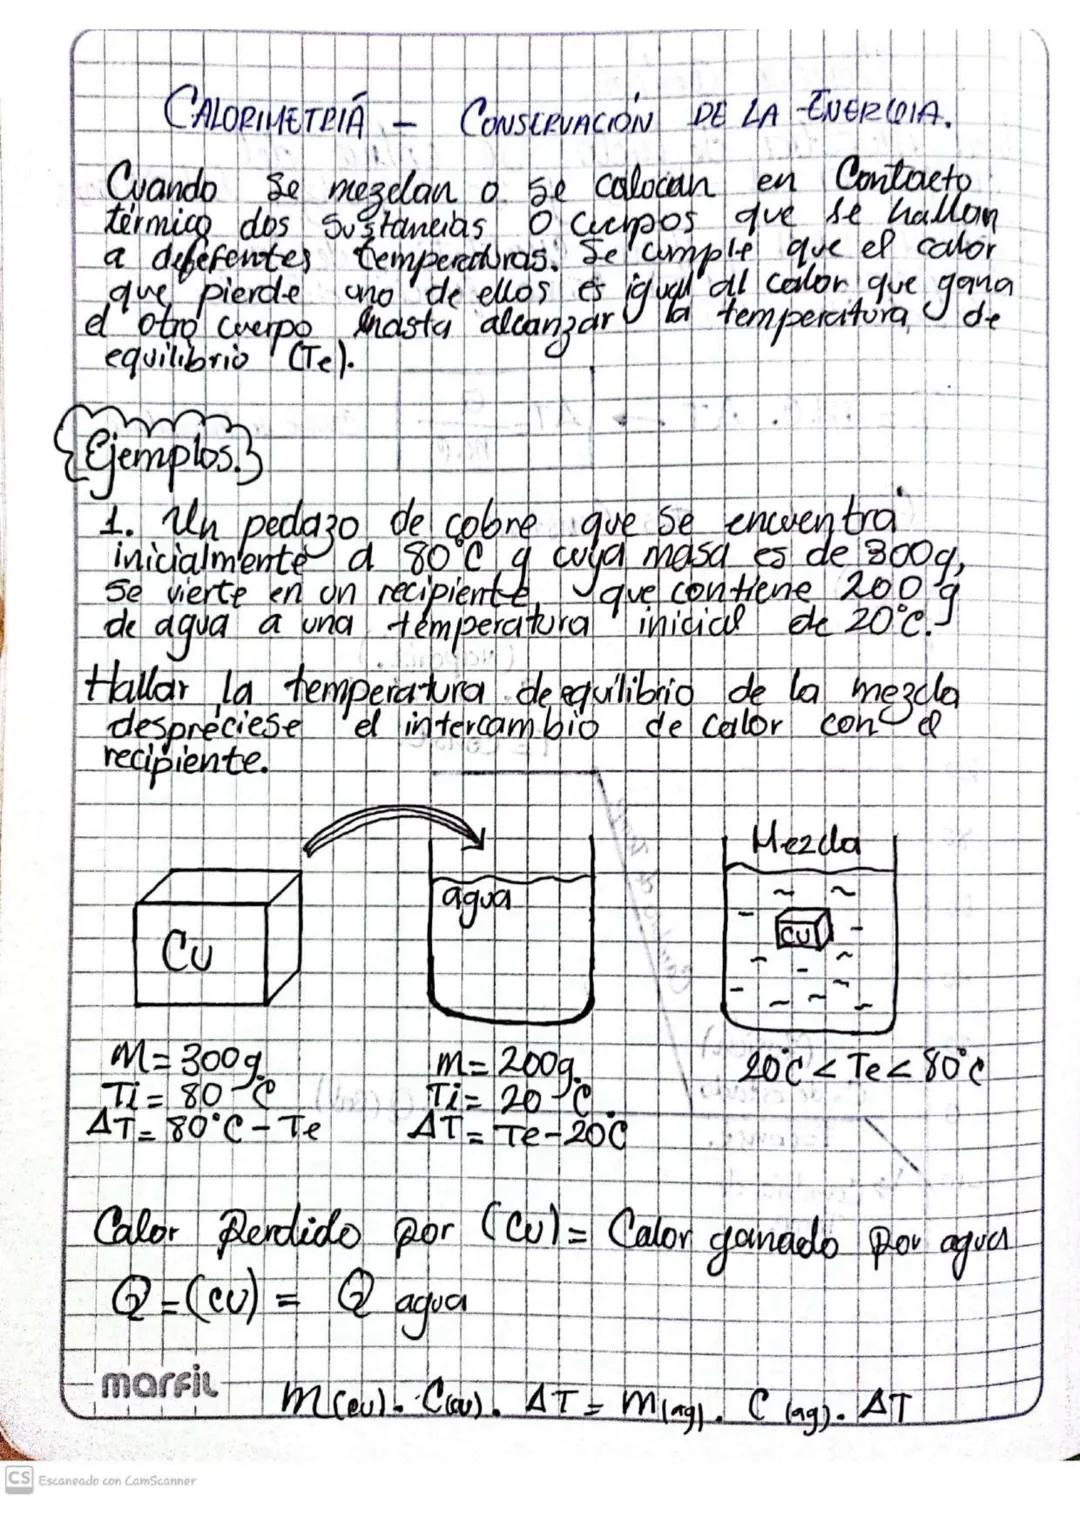 CALORIMETRIÁ - CONSERVACIÓN DE LA ENERGIA.
Cuando se mezclan o se colocan en Contacto
térmico dos sustancias o cuerpos que se hallan
a deferentes temperaturas. Se cumple que el calor
que pierde uno de ellos es igual al calor que gana
el otro cuerpo hasta alcanzar la temperatura de
equilibrio (Te).
Ejemplos.
1. Un pedazo de cobre que se encuentra
inicialmente a 80°C y cuya masa es de 300g,
se vierte en un recipiente que contiene 200g
de agua a una temperatura inicial de 20°C.
Hallar la temperatura de equilibrio de la mezcla
despréciese el intercambio de calor con el
recipiente.
Cu
agua
Mezcla
Cu
m = 300g. m = 200g. 20°C < Te < 80°C
Ti = 80°C Ti = 20°C.
ΔT = 80°C - Te ΔT = Te - 20°C
Calor Perdido por (Cu) = Calor ganado por agua
Q = (cu) = Q agua
marfil
m(cu). C(cu). ΔT = m(ag). C(ag). ΔT
CS Escaneado con CamScanner